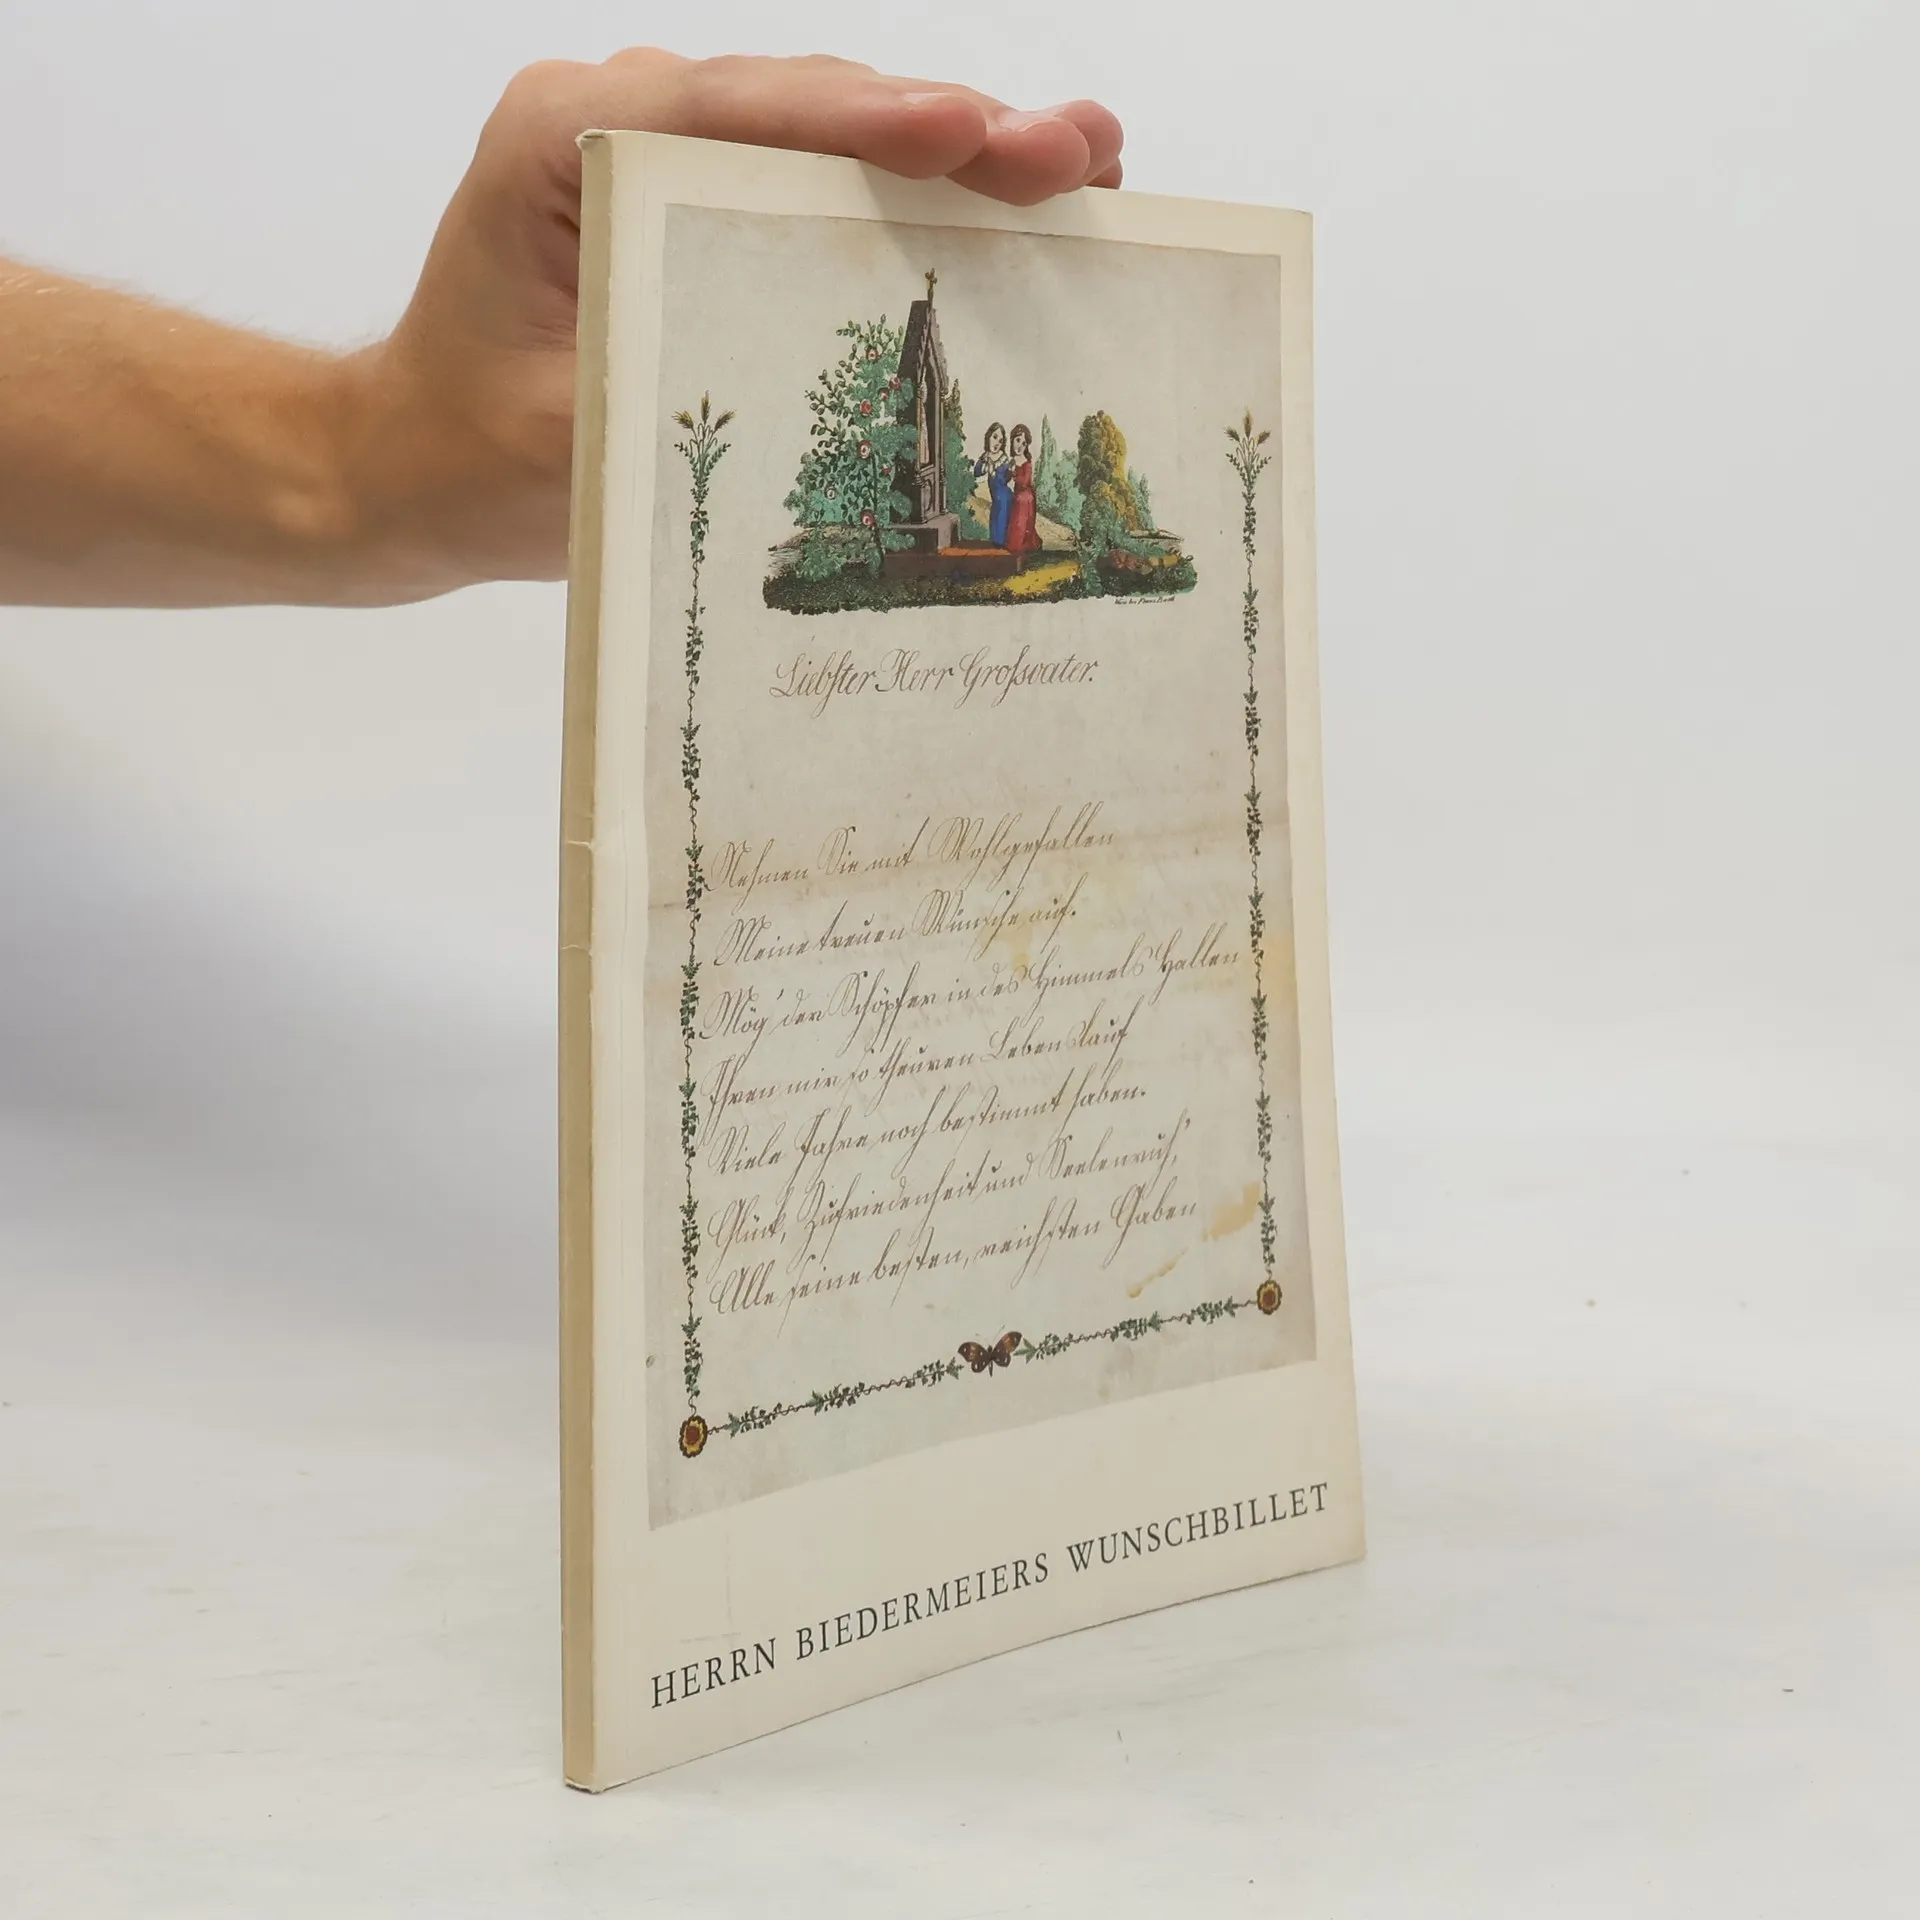 Liebster Herr Grosvater.
Nehmen Sie mit Wohlgefallen
Meine treuen Wünsche auf.
Mög' der Schöpfer in des Himmels Hallen
Ihren mir so theuren Lebenslauf
Viele Jahre noch bestimmt haben.
Glück, Zufriedenheit und Seelenruh',
Alle seine besten, reichsten Gaben
HERRN BIEDERMEIERS WUNSCHBILLET